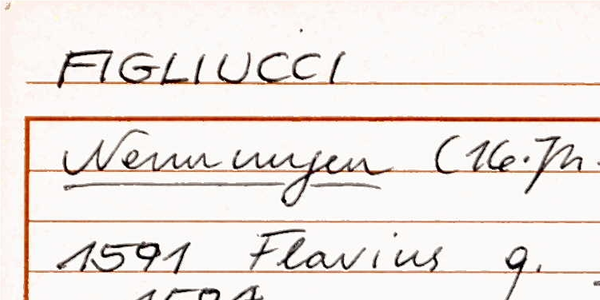 FIGLIUCCI
Nennungen (16. Jh.
1591 Flavius g.
1591